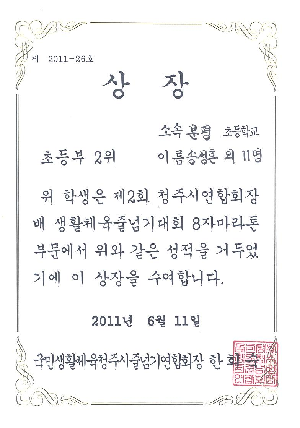 제 2011-26호
상 장
소속 분평 초등학교
초등부 2위 이름 송성훈 외 11명
위 학생은 제2회 청주시연합회장
배 생활체육줄넘기대회 8자마라톤
부문에서 위와 같은 성적을 거두었
기에 이 상장을 수여합니다.
2011년 6월 11일
국민생활체육청주시줄넘기연합회장 한